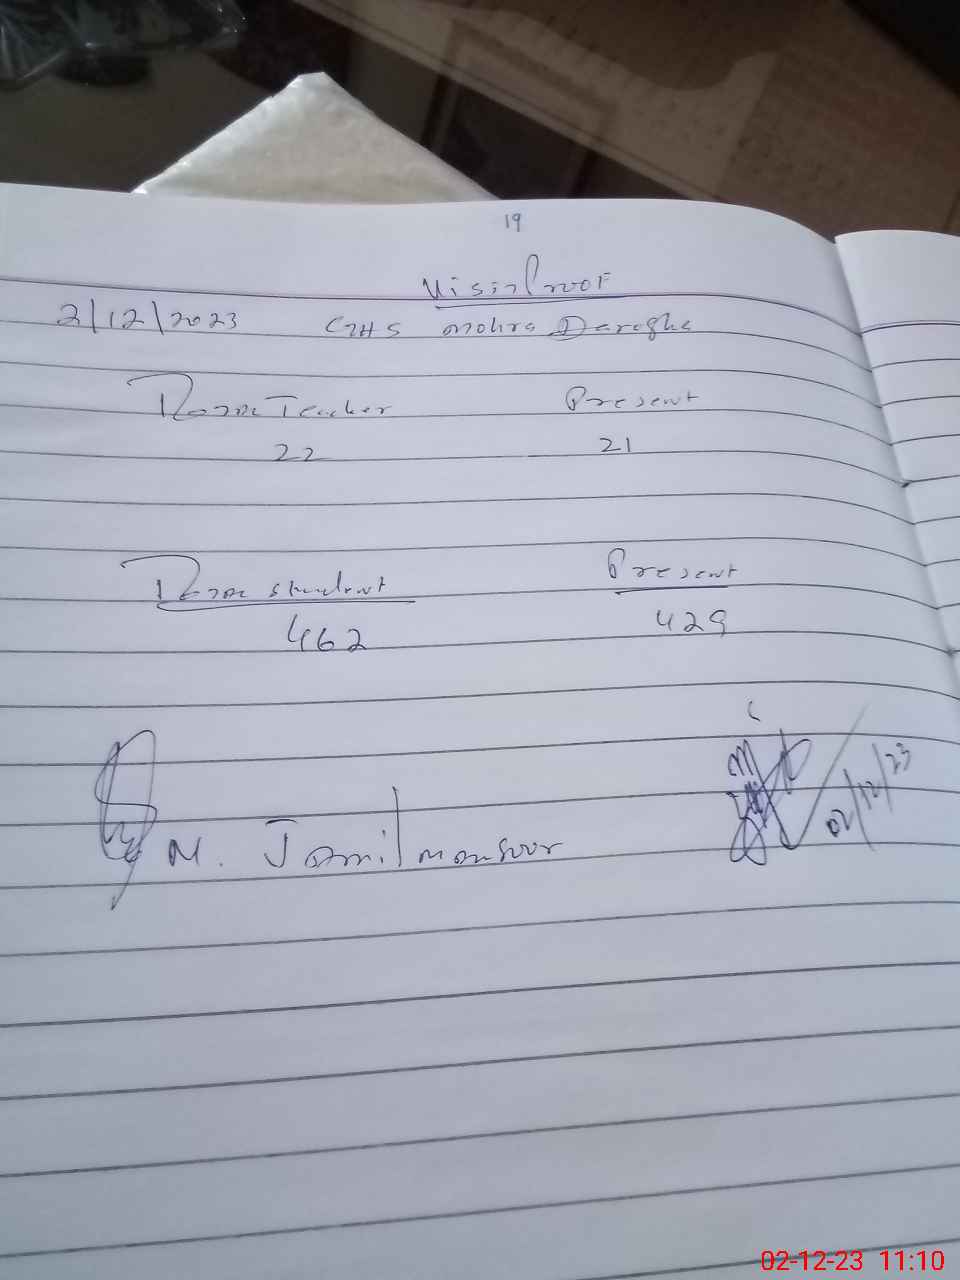 19
Visit Proof
2/12/2023 GHS Mohra Darogha
Teacher Present
22 21
student Present
462 429
M. Jamil mansoor
02/12/23
02-12-23 11:10